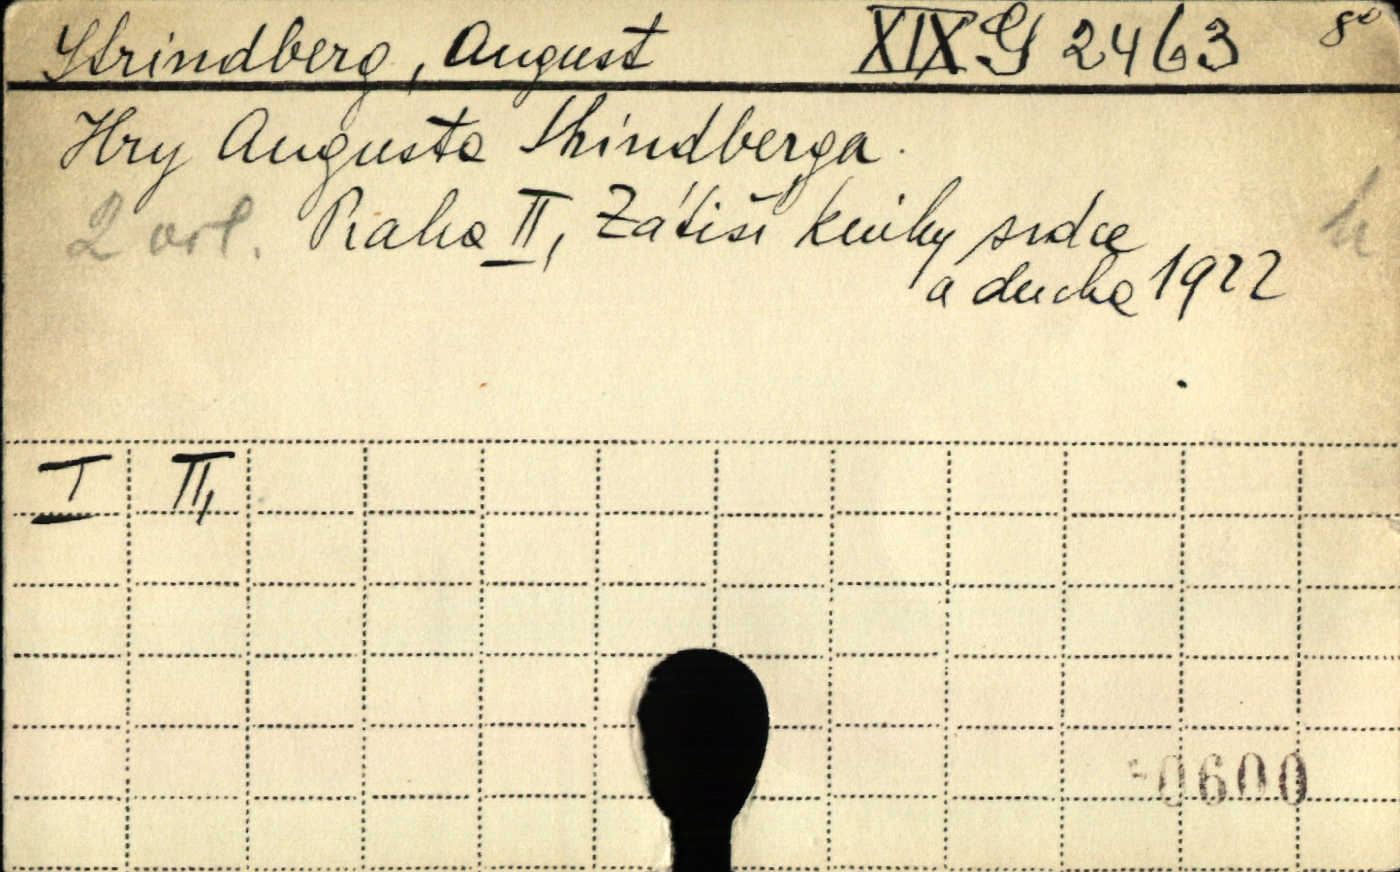 Strindberg, August XIX G 2463 8°
Hry Augusta Strindberga.
2 vol. Praha II, Zátiší knihy srdce
a ducha 1922
h
I II,
0600